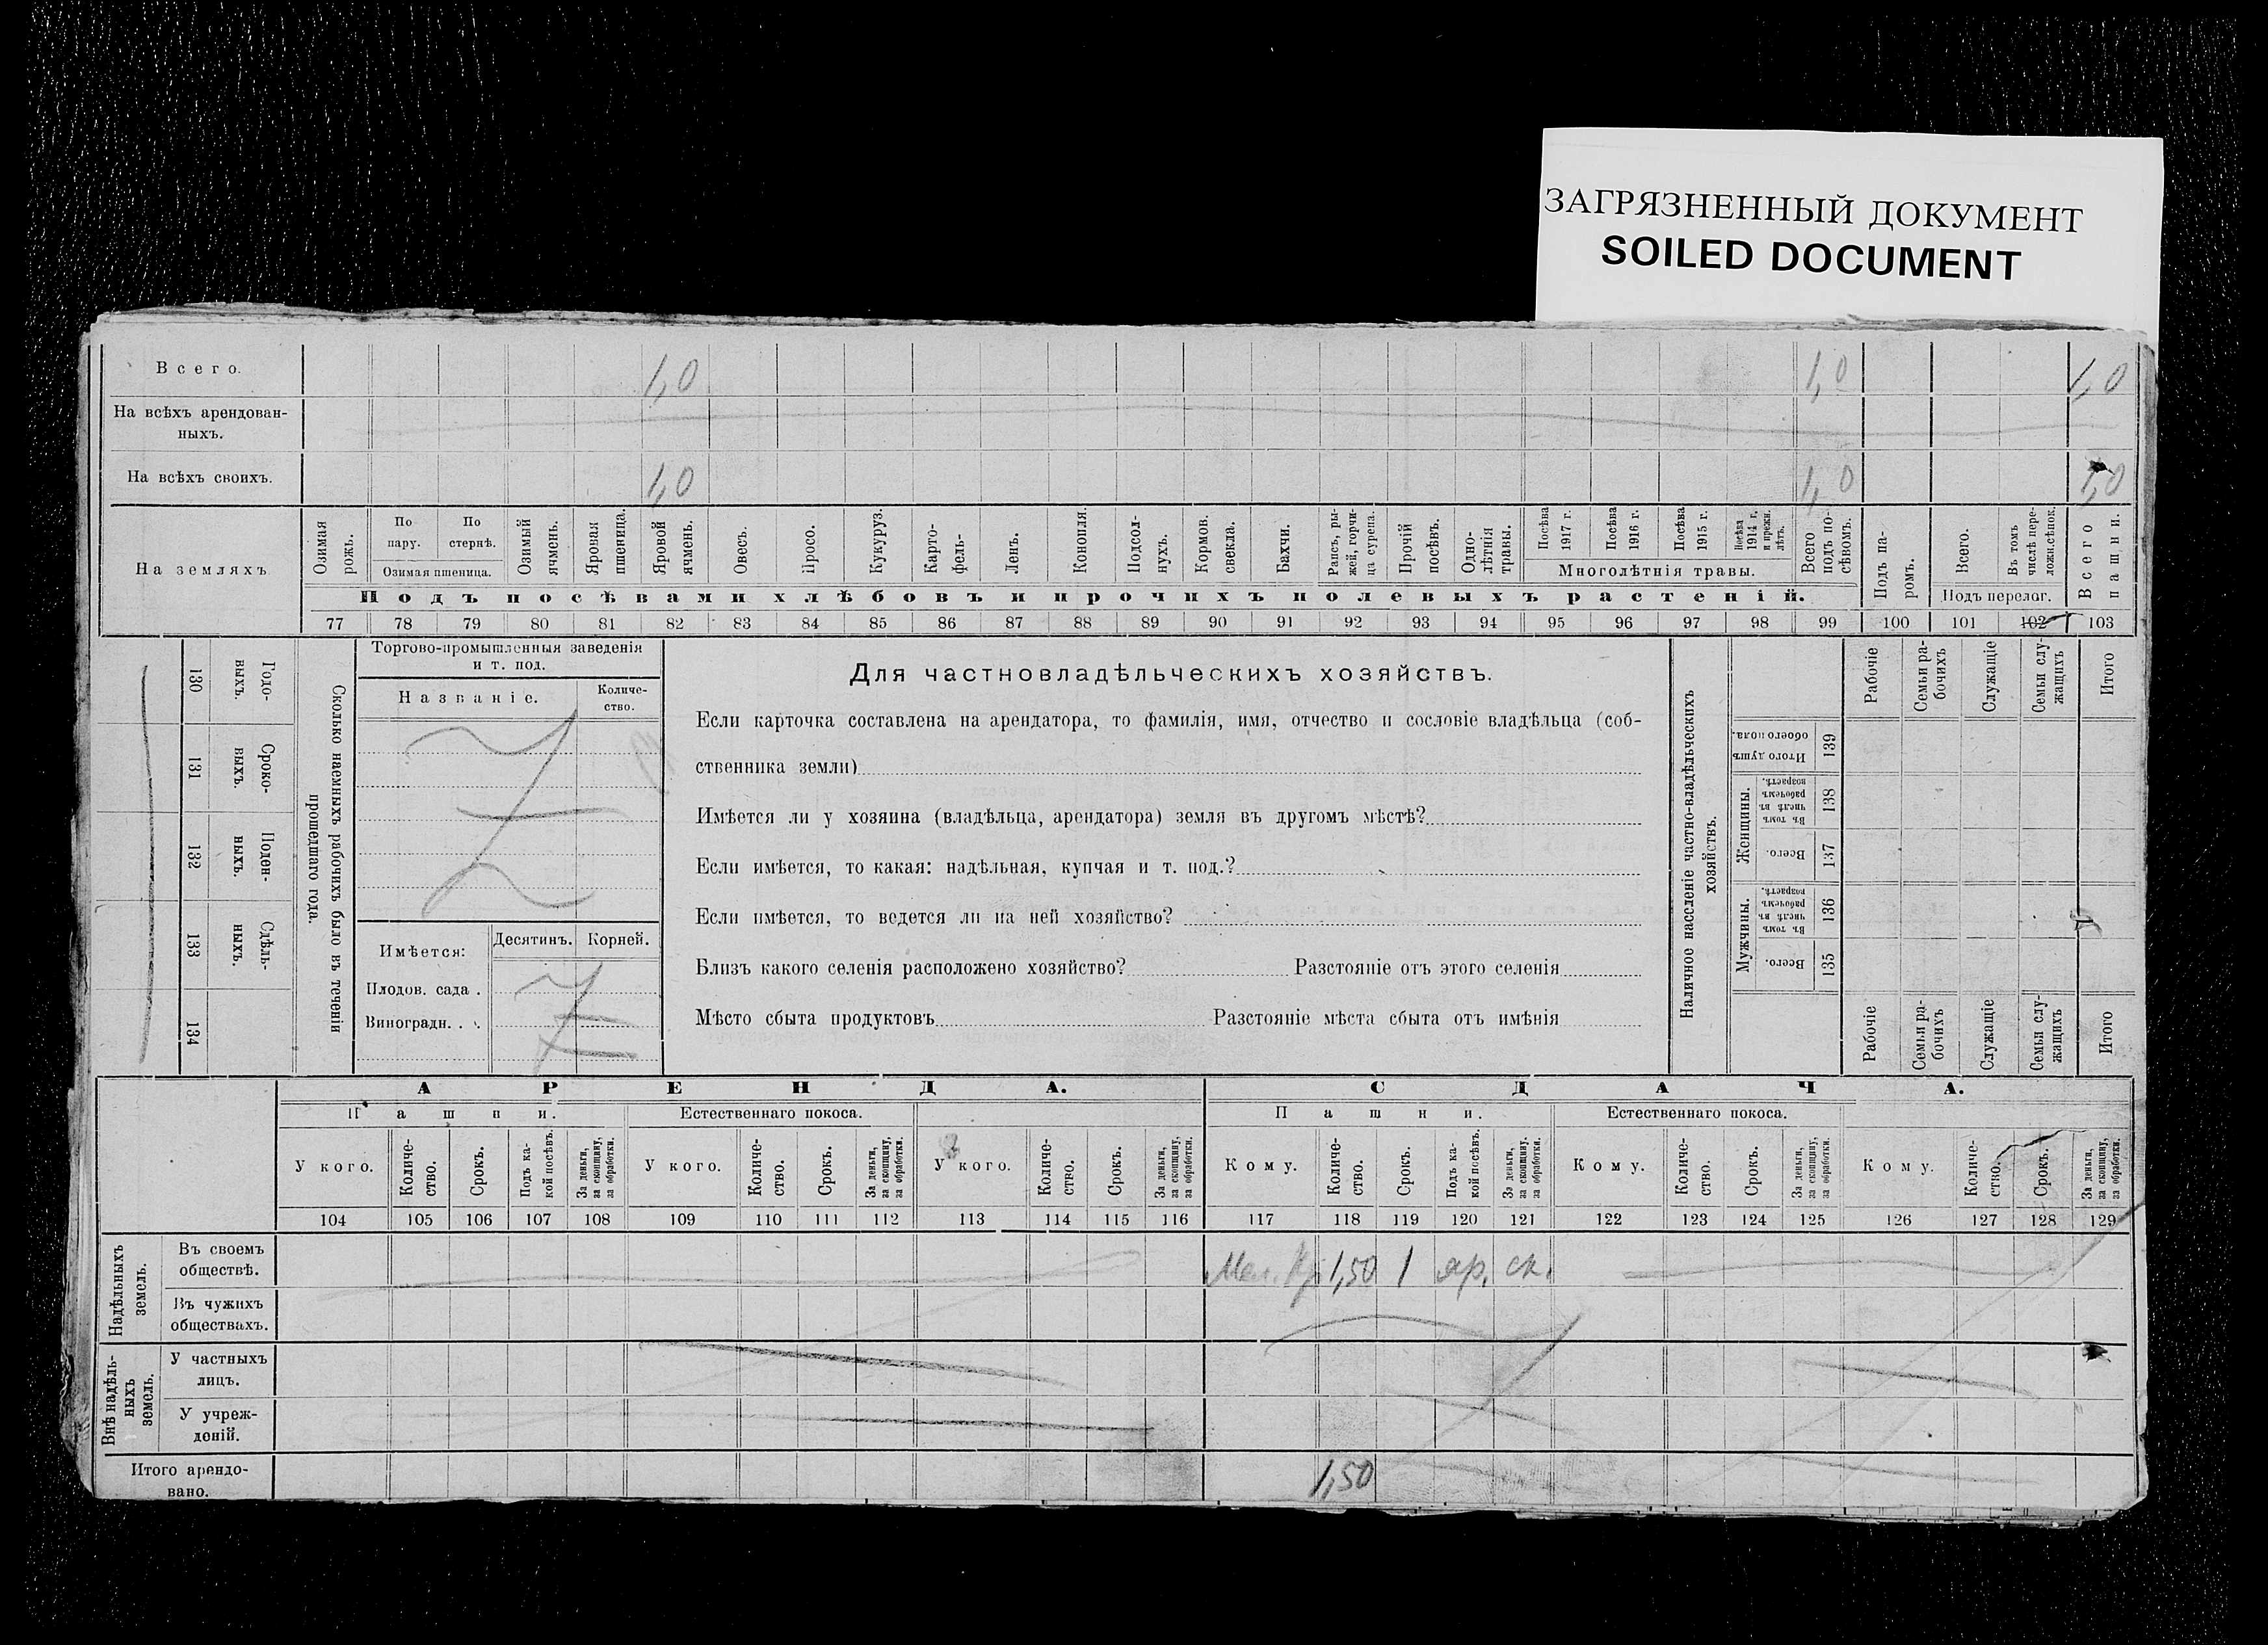 ЗАГРЯЗНЕННЫЙ ДОКУМЕНТ
SOILED DOCUMENT
Всего. 1,0 1,0 1,0
На всѣхъ арендован-
ныхъ.
На всѣхъ своихъ. 1,0 1,0 1,0
На земляхъ
Озимая рожь.
По пару.
По стернѣ.
Озимая пшеница.
Озимый ячмень.
Яровая пшеница.
Яровой ячмень.
Овесъ.
Просо.
Кукуруз.
Карто-
фель-
Ленъ.
Конопля.
Подсол-
нухъ.
Кормов.
свекла.
Бахчи.
Рапсъ, ры-
жей, горчи-
ца сурепа.
Прочій
посѣвъ.
Одно-
лѣтнія
травы.
Посѣва
1917 г.
Посѣва
1916 г.
Посѣва
1915 г.
Посѣва
1914 г.
и прежн.
лѣтъ.
Многолѣтнія травы.
Всего
подъ по-
сѣвомъ.
Подъ па-
ромъ.
Всего.
Въ томъ
числѣ пере-
ложн.сѣнок.
Подъ перелог.
Всего
пашни.
Подъ посѣвами хлѣбовъ и прочихъ полевыхъ растеній.
77 78 79 80 81 82 83 84 85 86 87 88 89 90 91 92 93 94 95 96 97 98 99 100 101 102 103
Годо-
выхъ.
130
Сроко-
выхъ.
131
Поден-
ныхъ.
132
Сдѣль-
ныхъ.
133
134
Сколько наемныхъ рабочихъ было въ теченіи
прошедшаго года.
Торгово-промышленныя заведенія
и т. под.
Названіе.
Количе-
ство.
Имѣется:
Десятинъ. Корней.
Плодов. сада .
Виноградн. . .
Для частновладѣльческихъ хозяйствъ.
Если карточка составлена на арендатора, то фамилія, имя, отчество и сословіе владѣльца (соб-
ственника земли)
Имѣется ли у хозяина (владѣльца, арендатора) земля въ другомъ мѣстѣ?
Если имѣется, то какая: надѣльная, купчая и т. под.?
Если имѣется, то ведется ли на ней хозяйство?
Близъ какого селенія расположено хозяйство? Разстояніе отъ этого селенія
Мѣсто сбыта продуктовъ Разстояніе мѣста сбыта отъ имѣнія
Наличное населеніе частно-владѣльческихъ
хозяйствъ.
Рабочіе
Семьи ра-
бочихъ
Служащіе
Семьи слу-
жащихъ
Итого
Итого душъ
обоего пола.
139
Женщины.
Въ томъ
числѣ въ
рабочемъ
возрастѣ.
138
Всего.
137
Мужчины.
Въ томъ
числѣ въ
рабочемъ
возрастѣ.
136
Всего.
135
Рабочіе
Семьи ра-
бочихъ
Служащіе
Семьи слу-
жащихъ
Итого
АРЕНДА. СДАЧА.
Пашни. Естественнаго покоса. Пашни. Естественнаго покоса.
У кого.
Количе-
ство.
Срокъ.
Подъ ка-
кой посѣвъ.
За деньги,
за скопщину,
за обработки.
У кого.
Количе-
ство.
Срокъ.
За деньги,
за скопщину,
за обработки.
У кого.
Количе-
ство.
Срокъ.
За деньги,
за скопщину,
за обработки.
Кому.
Количе-
ство.
Срокъ.
Подъ ка-
кой посѣвъ.
За деньги,
за скопщину,
за обработки.
Кому.
Количе-
ство.
Срокъ.
За деньги,
за скопщину,
за обработки.
Кому.
Количе-
ство.
Срокъ.
За деньги,
за скопщину,
за обработки.
104 105 106 107 108 109 110 111 112 113 114 115 116 117 118 119 120 121 122 123 124 125 126 127 128 129
Надѣльныхъ
земель.
Въ своемъ
обществѣ.
1,50 1 яр. ск.
Въ чужихъ
обществахъ.
Внѣ надѣль-
ныхъ
земель.
У частныхъ
лицъ.
У учреж-
деній.
Итого арендо-
вано.
1,50